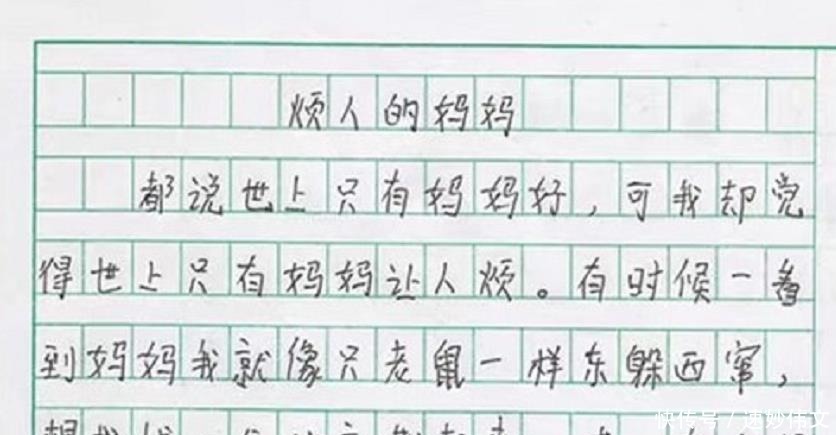 烦人的妈妈
都说世上只有妈妈好，可我却觉
得世上只有妈妈让人烦。有时候一看
到妈妈我就像只老鼠一样东躲西窜，
快传号/速妙伟文